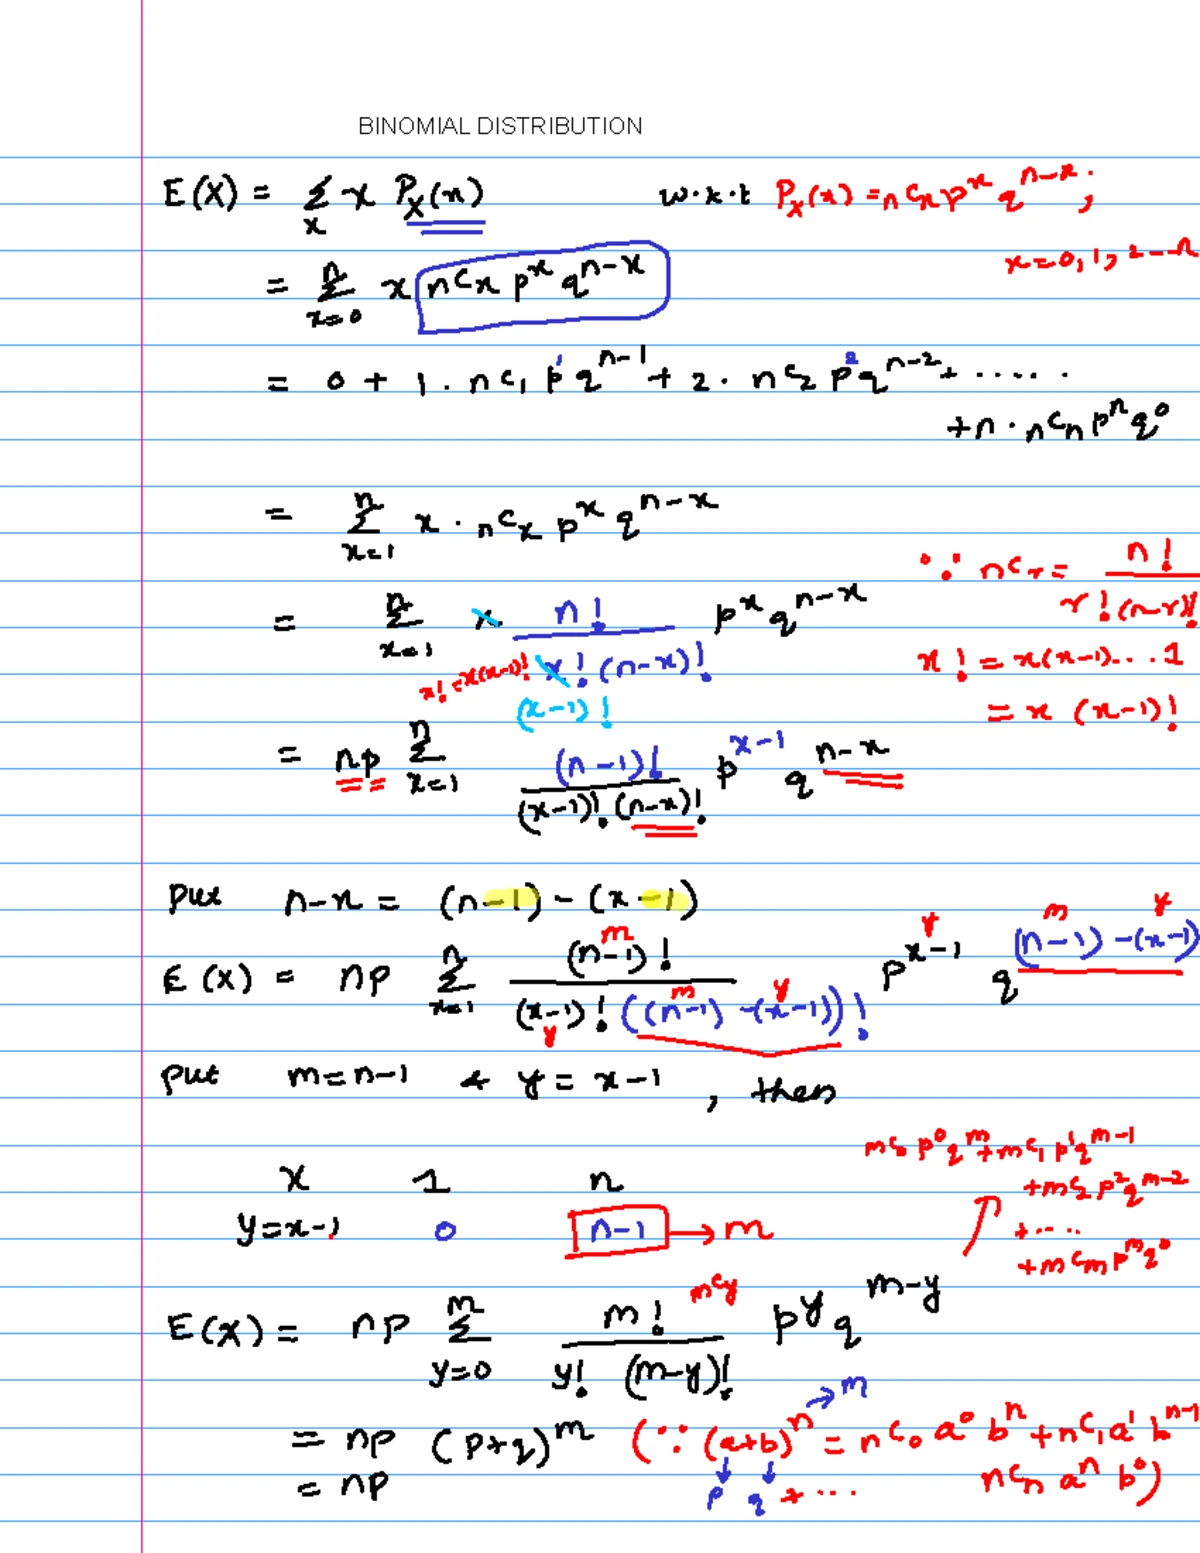 BINOMIAL DISTRIBUTION
E(X) = Σ_x x P_X(x) w.k.t P_X(x) = nCx p^x q^(n-x);
x = 0, 1, 2 -- n
= Σ_(x=0)^n x nCx p^x q^(n-x)
= 0 + 1 · nC1 p^1 q^(n-1) + 2 · nC2 p^2 q^(n-2) + .....
+ n · nCn p^n q^0
= Σ_(x=1)^n x · nCx p^x q^(n-x)
∵ nCr = n! / r!(n-r)!
= Σ_(x=1)^n x n! / x!(n-x)! p^x q^(n-x)
x! = x(x-1)! (x-1)!
x! = x(x-1)...1
= x (x-1)!
= np Σ_(x=1)^n (n-1)! / (x-1)!(n-x)! p^(x-1) q^(n-x)
put n-x = (n-1) - (x-1)
m y m y
E(X) = np Σ_(x=1)^n (n-1)! / (x-1)! ((n-1)-(x-1))! p^(x-1) q^((n-1)-(x-1))
y m y
put m = n-1 & y = x-1, then
mC0 p^0 q^m + mC1 p^1 q^(m-1)
+ mC2 p^2 q^(m-2)
+ ....
+ mCm p^m q^0
x 1 n
y = x-1 0 n-1 → m
mCy
E(X) = np Σ_(y=0)^m m! / y! (m-y)! p^y q^(m-y)
→ m
= np (p+q)^m (∵ (a+b)^n = nC0 a^0 b^n + nC1 a^1 b^(n-1)
= np p q + ... nCn a^n b^0)